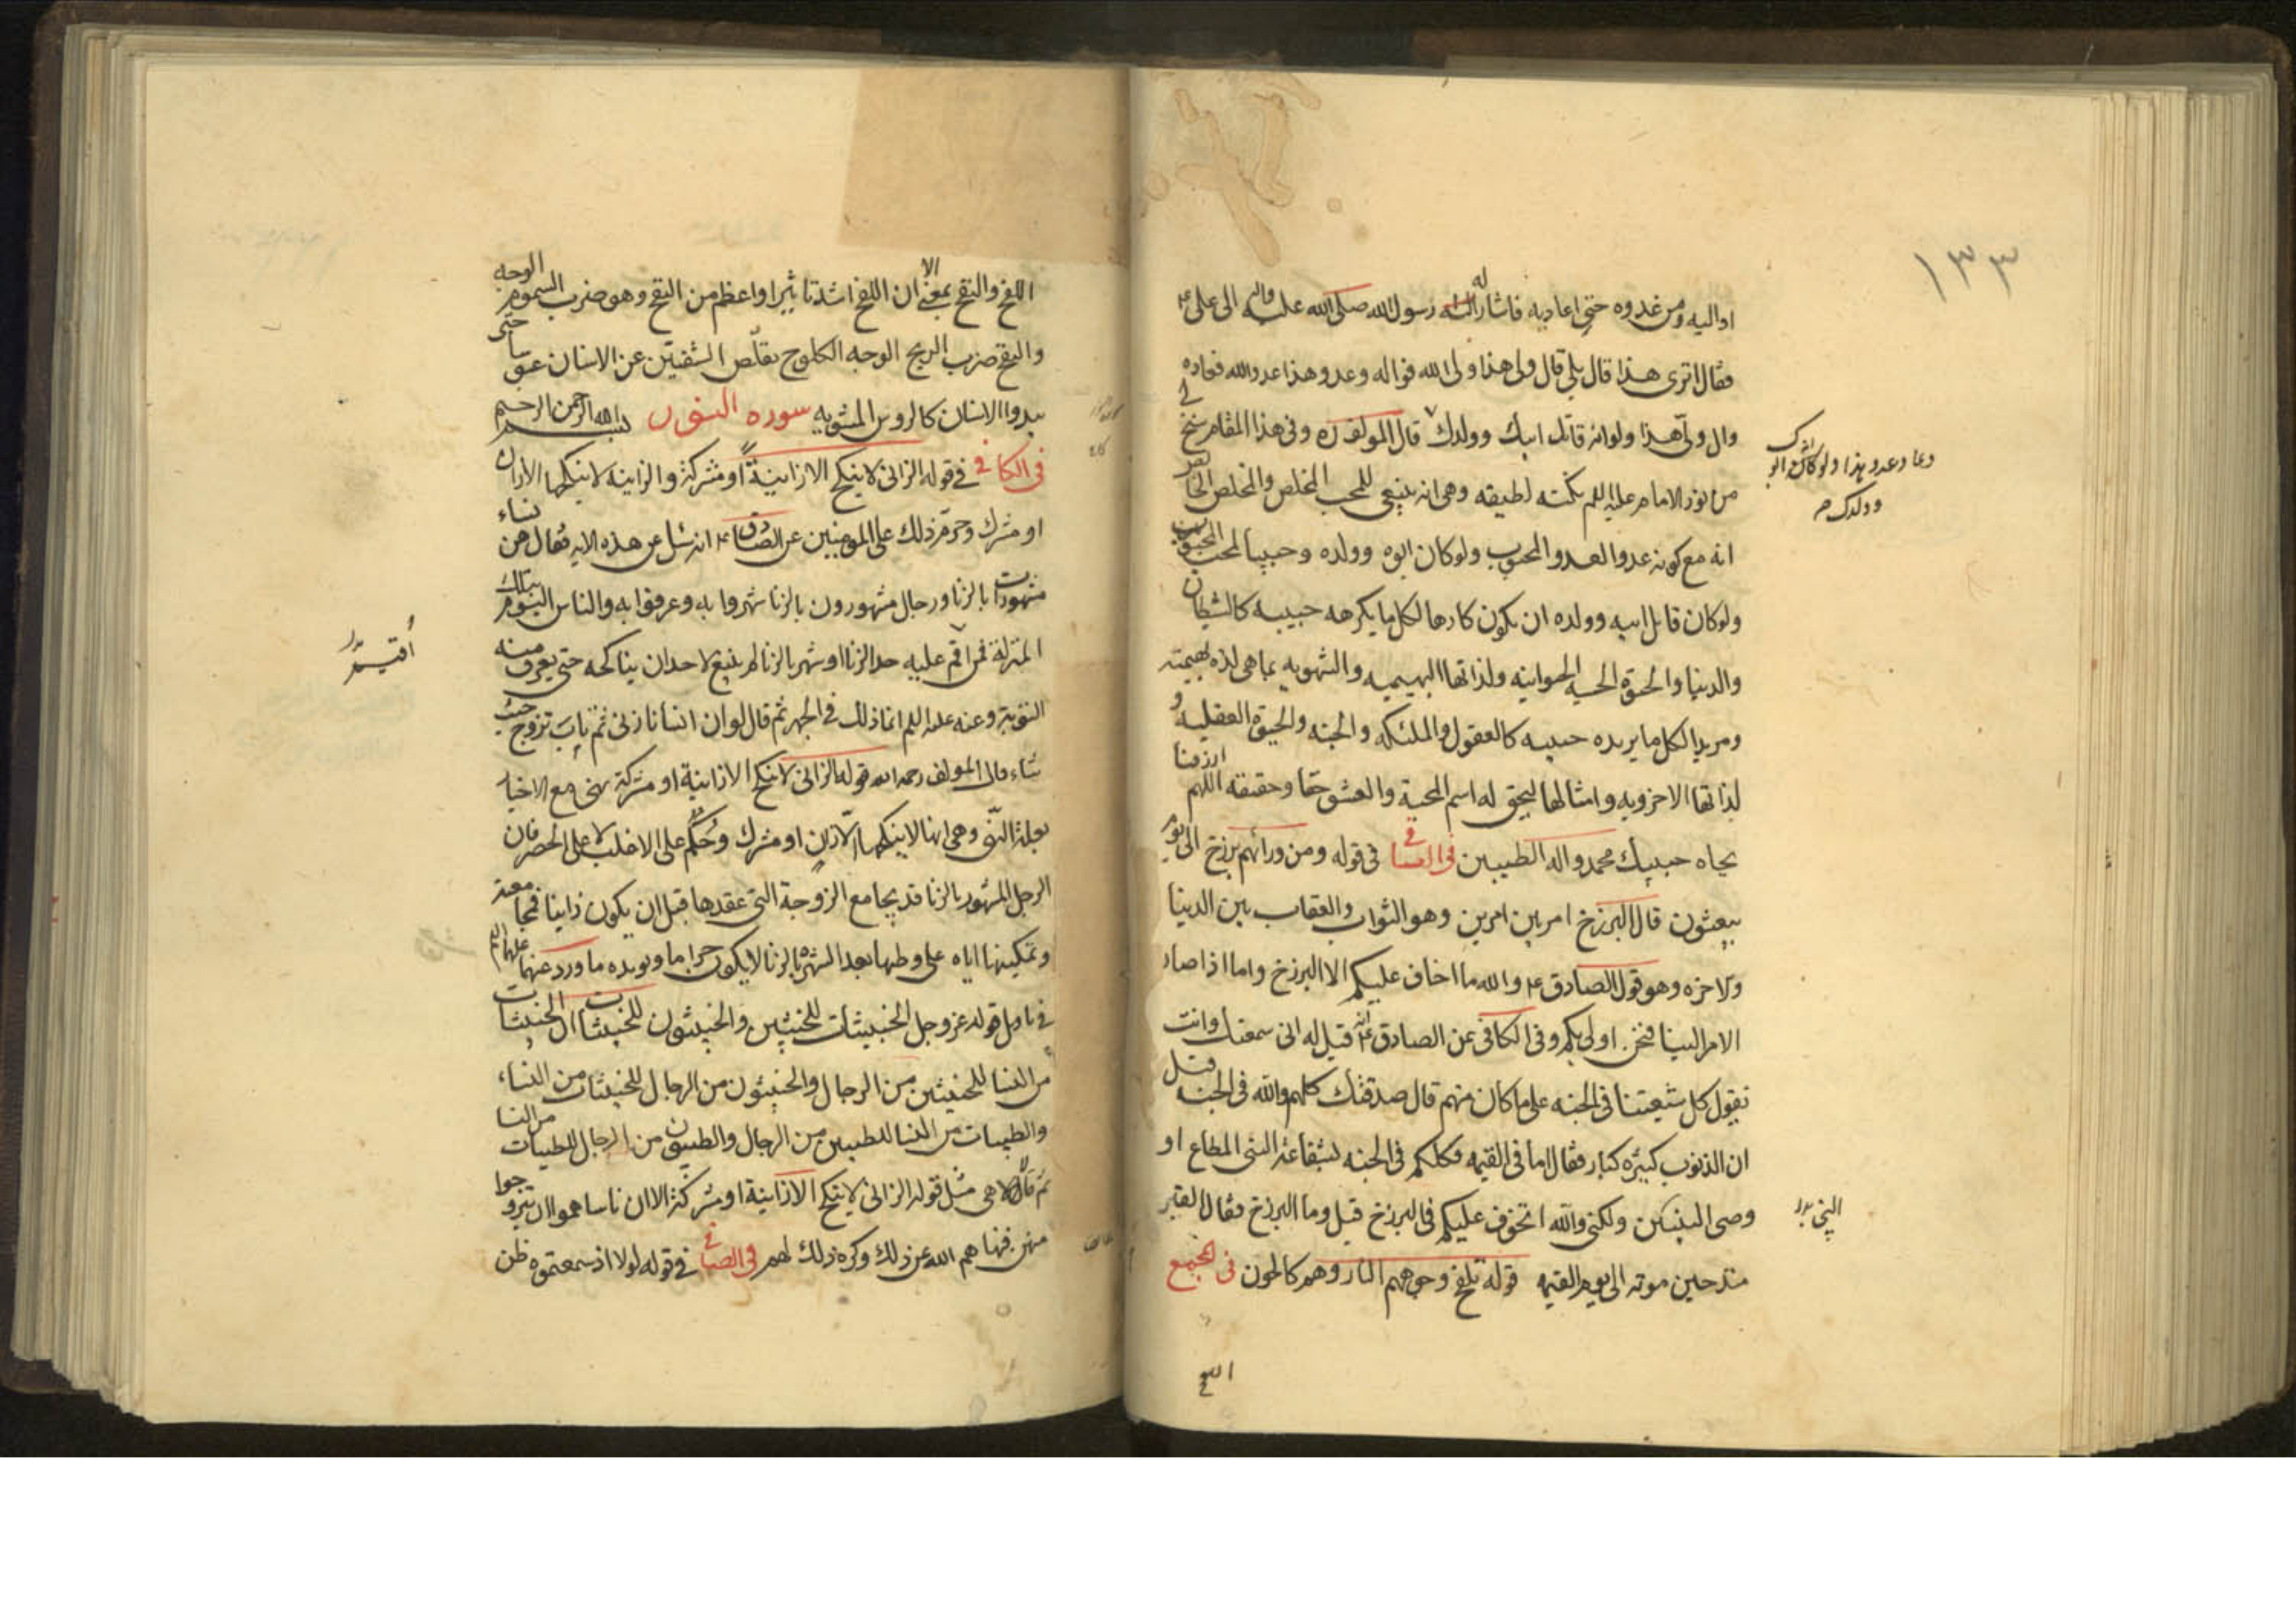 ١٣٣
اواليه ومن عدوه حتى اعاديه فاشار له رسول الله صلى الله عليه واله الى على ع
فقال اترى هذا قال بلى قال ولى هذا ولى الله فواله وعدو هذا عدو الله فعاده
وال ولى هذا ولو انه قاتل ابيك وولدك قال المولف ره وفى هذا المقام سنح لى
من نور الامام عليه السلم نكته لطيفه وهى انه ينبغى للمحب المخلص والمخلص
انه مع كونه عدوا لعدو المحبوب ولو كان ابوه وولده وحبيبا لمحب المحبوب
ولو كان قاتل ابيه وولده ان يكون كارها لكل ما يكرهه حبيبه كالشيطان
والدنيا والحيوة الحسيه الحيوانيه ولذاتها البهيميه والشهويه بما هى لذه بهيميته
ومريدا لكل ما يريده حبيبه كالعقول والملئكه والجنه والحيوة العقليه و
لذاتها الاخرويه وامثالها ليحق له اسم المحبة والعشق حقا وحقيقه اللهم ارزقنا
بجاه حبيبك محمد واله الطيبين فى الصافى فى قوله ومن ورائهم برزخ الى يوم
يبعثون قال البرزخ امر بين امرين وهو الثواب والعقاب بين الدنيا
والاخره وهو قول الصادق ع والله ما اخاف عليكم الا البرزخ واما اذا صار
الامر الينا فنحن اولى بكم وفى الكافى عن الصادق ع انه قيل له انى سمعتك وانت
تقول كل شيعتنا فى الجنه على ما كان منهم قال صدقتك كلهم والله فى الجنه قيل
ان الذنوب كثيره كبار فقال اما فى القيمه فكلكم فى الجنه بشفاعة النبى المطاع او
وصى النبى ولكنى والله اتخوف عليكم فى البرزخ قيل وما البرزخ فقال القبر
منذ حين موته الى يوم القيمه قوله تلفح وجوههم النار وهم كالحون فى المجمع
وعاد عدو هذا ولو كان ابوك
وولدك
النبى
اللفح
اللفح والنفح بمعنى الا ان اللفح اشد تاثيرا واعظم من النفح وهو ضرب السموم الوجه
والنفح ضرب الريح الوجه الكلوح تقلص الشفتين عن الاسنان حتى
يبدوا الاسنان كالروس المشويه سوره النور بسم الله الرحمن الرحيم
فى الكافى فى قوله الزانى لا ينكح الا زانية او مشركة والزانية لا ينكحها الا زان
او مشرك وحرم ذلك على المومنين عن الصادق ع انه سئل عن هذه الايه فقال هن نساء
مشهورات بالزنا ورجال مشهورون بالزنا شهروا به وعرفوا به والناس اليوم بتلك
المنزلة فمن اقيم عليه حد الزنا او شهر بالزنا لم ينبغ لاحد ان يناكحه حتى يعرف منه
التوبة وعنه عليه السلم انما ذلك فى الجهر ثم قال لو ان انسانا زنى ثم تاب تزوج حيث
شاء قال المولف رحمه الله قوله الزانى لا ينكح الا زانية او مشركة نهى مع الاخبار
بعلة النهى وهى انها لا ينكحها الا زان او مشرك وحكم على الاغلب لا على الحصر فان
الرجل المشهور بالزنا قد يجامع الزوجة التى عقدها قبل ان يكون زانيا فمجامعته
وتمكينها اياه على وطيها بعد الشهره بالزنا لا يكون حراما ويويده ما ورد عنهما عليهما السلم
فى تاويل قوله عز وجل الخبيثات للخبيثين والخبيثون للخبيثات الخبيثات
من النسا للخبيثين من الرجال والخبيثون من الرجال للخبيثات من النساء
والطيبات من النسا للطيبين من الرجال والطيبون من الرجال للطيبات من النسا
ثم قال هى مثل قوله الزانى لا ينكح الا زانية او مشركة الا ان ناسا هموا ان يتزوجوا
منهن فنهاهم الله عن ذلك وكره ذلك لهم فى الصافى فى قوله لولا اذ سمعتموه ظن
اقيم